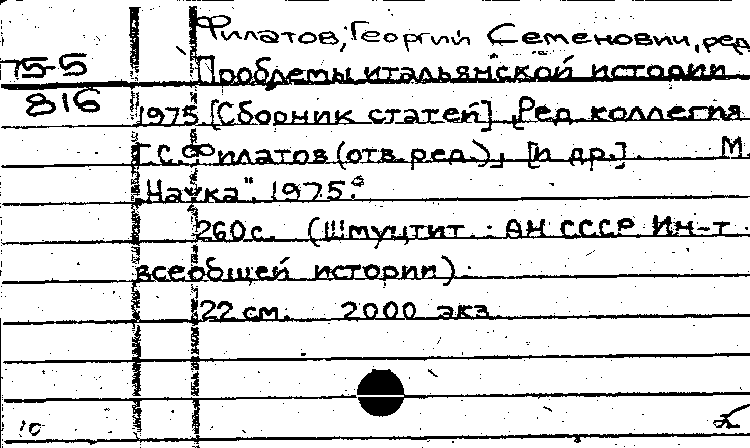 Филатов, Георгий Семенович, ред
75-5 Проблемы итальянской истории
816 1975. [Сборник статей]. Ред. коллегия
Г.С. Филатов (отв. ред.), [и др.]. М
„Наука". 1975.
260 с. (Шмуцтит. : АН СССР Ин-т
всеобщей истории).
22 см. 2000 экз.
10